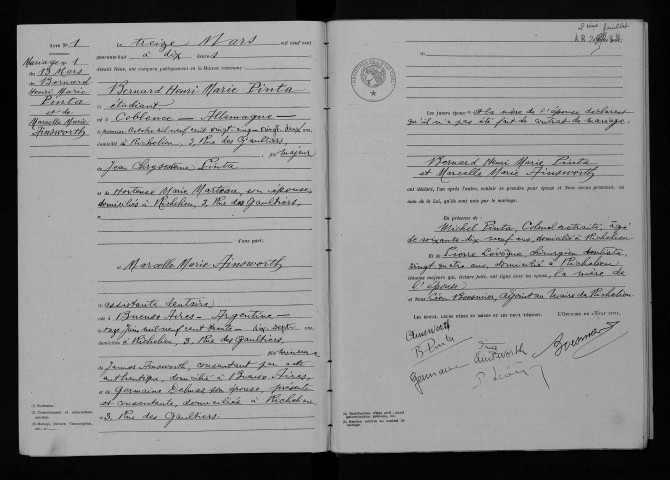 Acte No 1
Mariage no 1
du 13 Mars
de Bernard
Henri Marie
Pinta
et de
Marcelle Marie
Ainsworth
Le treize Mars mil neuf cent
quarante-huit à dix heures
devant Nous, ont comparu publiquement en la Maison commune
Bernard Henri Marie Pinta
étudiant
né à Coblence - Allemagne -
le premier Octobre mil neuf cent vingt-cinq - vingt-deux ans
domicilié à Richelieu, 3, Rue des Gaultiers,
majeur
de Jean Chrysostome Pinta
et de Hortense Marie Marteau, son épouse,
domiciliés à Richelieu, 3, Rue des Gaultiers,
d'une part;
Marcelle Marie Ainsworth
assistante dentaire
née à Buenos Aires - Argentine -
le onze Juin mil neuf cent trente - dix-sept ans
domiciliée à Richelieu, 3, Rue des Gaultiers,
mineure
de James Ainsworth, consentant par acte
authentique, domicilié à Buenos Aires,
et de Germaine Delmas son épouse, présente
et consentante, domiciliée à Richelieu,
3, Rue des Gaultiers.
(1) Profession.
2eme feuillet
Les futurs époux et la mère de l'épouse déclarent
qu'il n'a pas été fait de contrat de mariage.
Bernard Henri Marie Pinta
et Marcelle Marie Ainsworth
ont déclaré, l'un après l'autre, vouloir se prendre pour époux et Nous avons prononcé, au
nom de la Loi, qu'ils sont unis par le mariage.
En présence de :
Michel Pinta, Colonel retraité, âgé
de soixante-dix neuf ans, domicilié à Richelieu
et Pierre Levêque, chirurgien dentiste,
vingt-quatre ans, domicilié à Richelieu
témoins majeurs qui, lecture faite, ont signé avec les époux, la mère de
l'épouse
et Nous Léon Bessonnier, adjoint au Maire de Richelieu.
Les époux, leurs pères et mères et les deux témoins,
L'Officier de l'État civil,
Ainsworth
B. Pinta
Pinta
Germaine Ainsworth